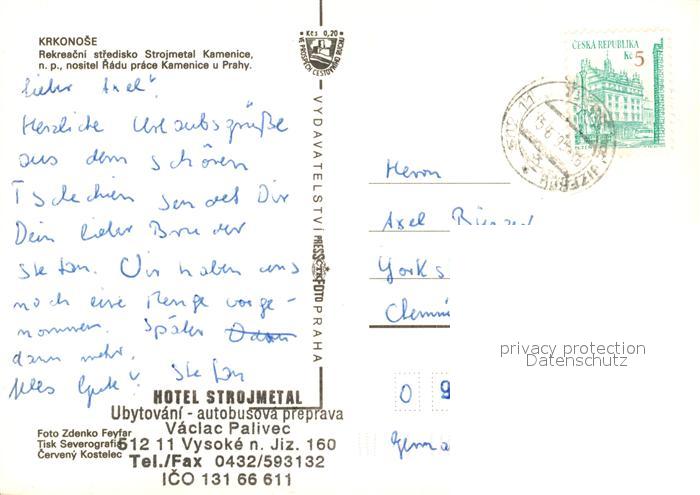 KRKONOŠE
Rekreační středisko Strojmetal Kamenice,
n. p., nositel Řádu práce Kamenice u Prahy.
Kčs 0,20
VE PROSPĚCH CESTOVNÍHO RUCHU
ČESKÁ REPUBLIKA
Kč 5
Lieber Axel!
Herzliche Urlaubsgrüße
aus dem schönen
Tschechien sendet Dir
Dein lieber Bruder
Stefan. Wir haben uns
noch eine Menge vorge-
nommen. Später
dann mehr.
Alles Gute! Stefan
VYDAVATELSTVÍ PRESSFOTO PRAHA
Herrn
Axel
Yorks
Chemni
0 9
Germa
privacy protection
Datenschutz
HOTEL STROJMETAL
Ubytování - autobusová přeprava
Václav Palivec
512 11 Vysoké n. Jiz. 160
Tel./Fax 0432/593132
IČO 131 66 611
Foto Zdenko Feyfar
Tisk Severografie
Červený Kostelec